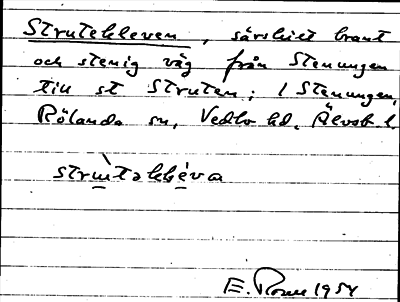 Strutekleven, särskilt brant
och stenig väg från Stenungen
till st Struten; i Stenungen,
Rölanda sn, Vedbo hd. Älvsb l.
strùtəkléva
E. 1954